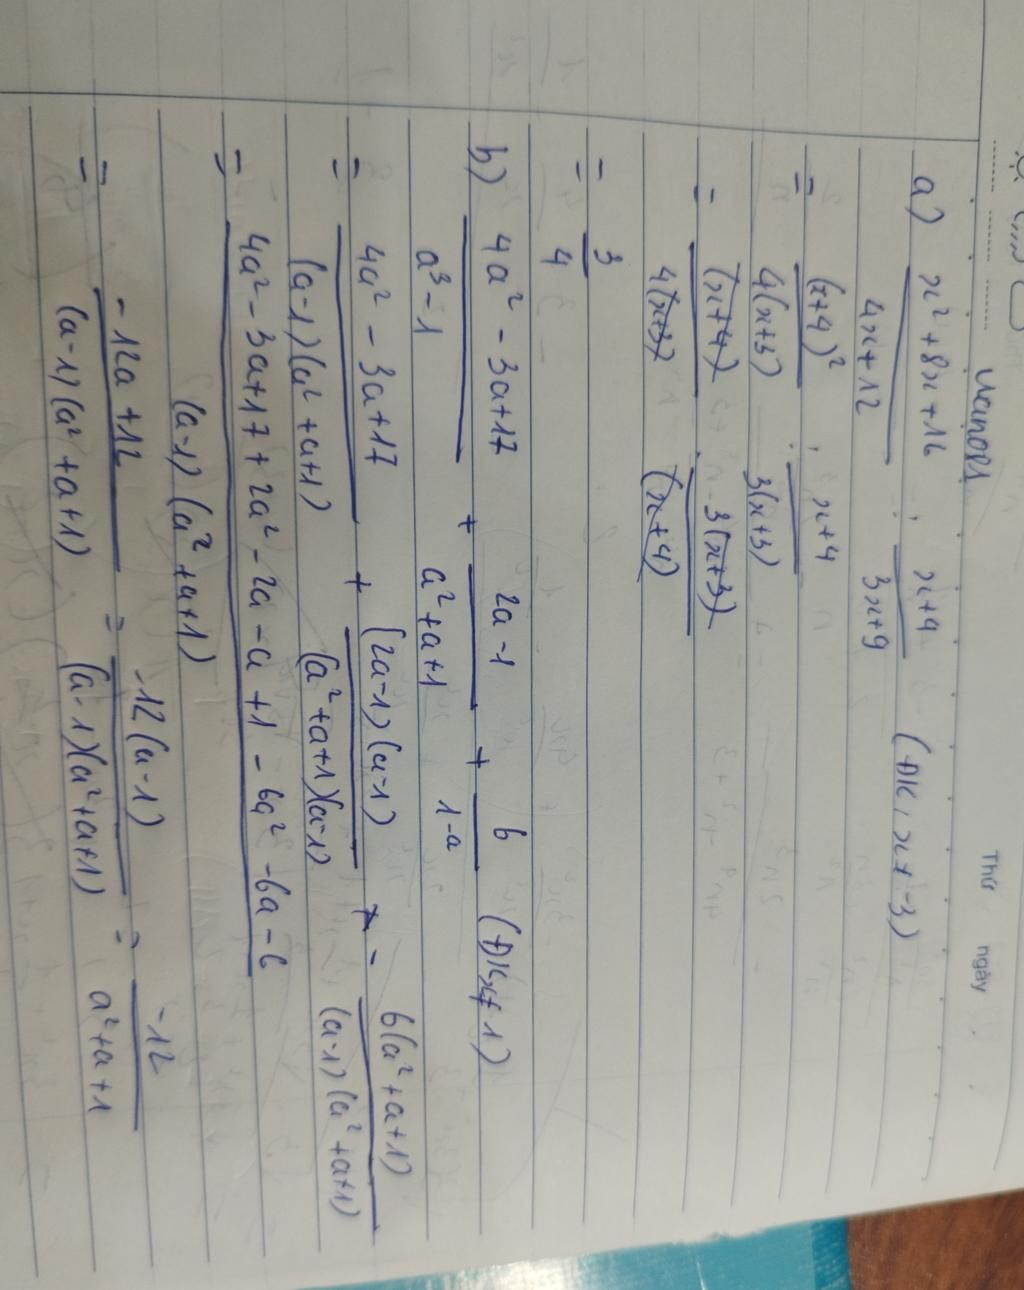 Thứ ngày
a) x² + 8x + 16 / 4x + 12 : x + 4 / 3x + 9 (ĐK: x ≠ -3)
= (x+4)² / 4(x+3) : x+4 / 3(x+3)
= (x+4) / 4(x+3) . 3(x+3) / (x+4)
= 3 / 4
b) 4a² - 3a + 17 / a³ - 1 + 2a - 1 / a² + a + 1 + 6 / 1 - a (ĐK x ≠ 1)
= 4a² - 3a + 17 / (a-1)(a² + a + 1) + (2a-1)(a-1) / (a² + a + 1)(a-1) - 6(a² + a + 1) / (a-1)(a² + a + 1)
= 4a² - 3a + 17 + 2a² - 2a - a + 1 - 6a² - 6a - 6 / (a-1)(a² + a + 1)
= -12a + 12 / (a-1)(a² + a + 1) = -12(a-1) / (a-1)(a² + a + 1) = -12 / a² + a + 1